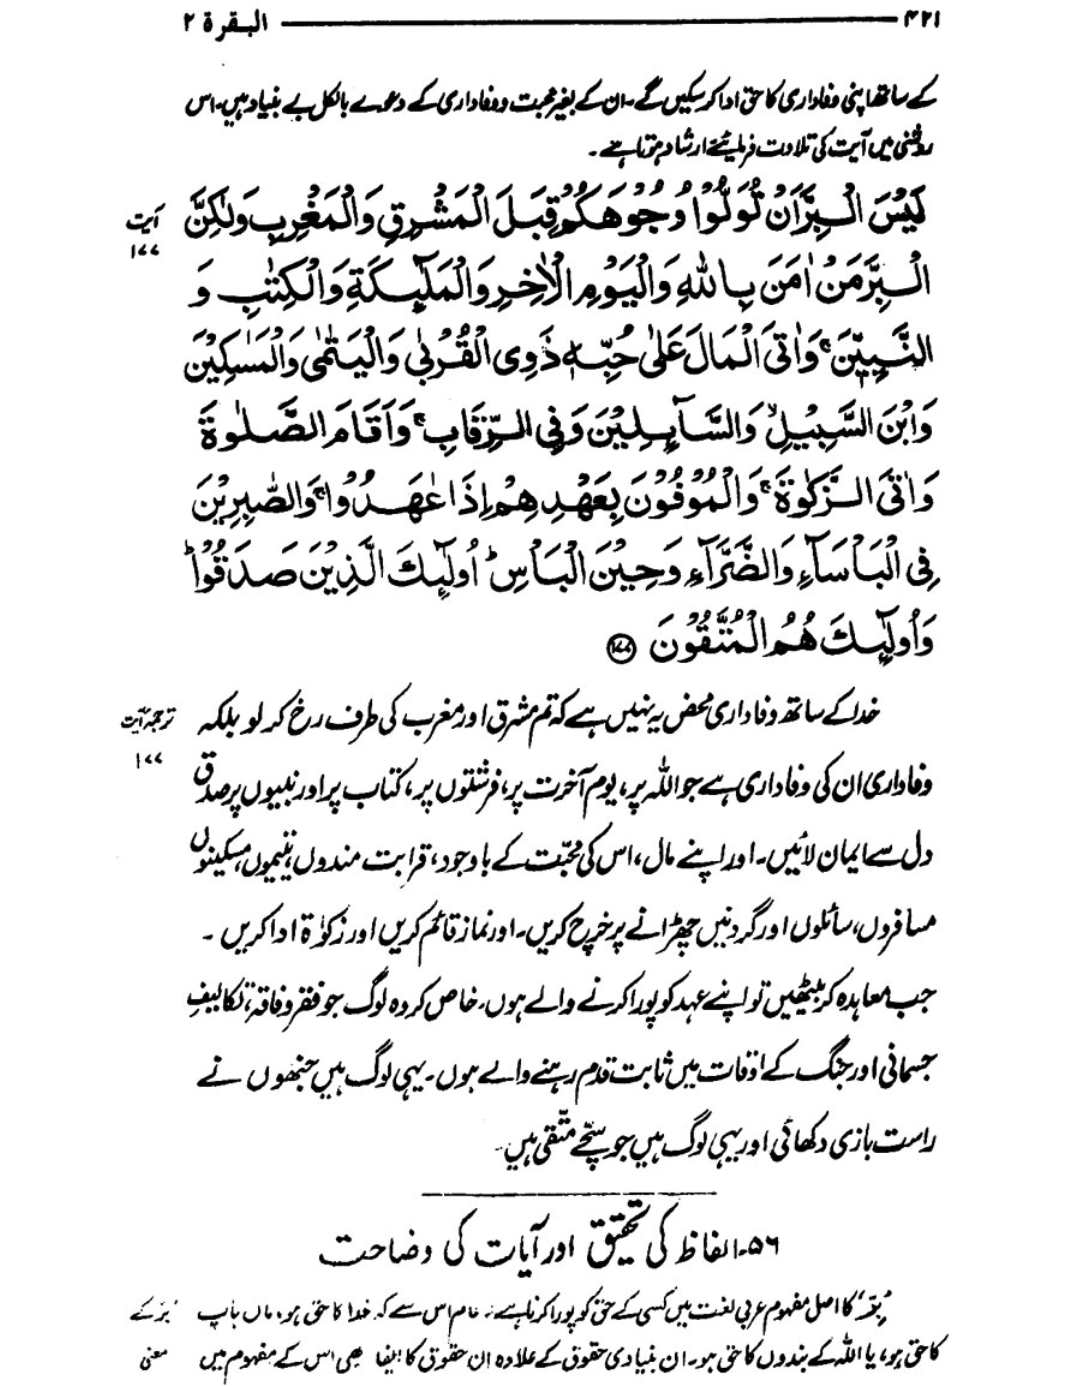 ۴۲۱ البقرة ۲
کے ساتھ اپنی وفاداری کا حق ادا کر سکیں گے۔ ان کے بغیر محبت و وفاداری کے دعوے بالکل بے بنیاد ہیں۔ اس
روشنی میں آیت کی تلاوت فرمائیے ارشاد ہوتا ہے۔
لَيْسَ الْبِرَّ اَنْ تُوَلُّوْا وُجُوْهَكُمْ قِبَلَ الْمَشْرِقِ وَالْمَغْرِبِ وَلٰكِنَّ
آیت
۱۷۷
الْبِرَّ مَنْ اٰمَنَ بِاللّٰهِ وَالْيَوْمِ الْاٰخِرِ وَالْمَلٰٓئِكَةِ وَالْكِتٰبِ وَ
النَّبِيّٖنَ ۚ وَاٰتَى الْمَالَ عَلٰى حُبِّهٖ ذَوِى الْقُرْبٰى وَالْيَتٰمٰى وَالْمَسٰكِيْنَ
وَابْنَ السَّبِيْلِ ۙ وَالسَّآئِلِيْنَ وَفِى الرِّقَابِ ۚ وَاَقَامَ الصَّلٰوةَ
وَاٰتَى الزَّكٰوةَ ۚ وَالْمُوْفُوْنَ بِعَهْدِهِمْ اِذَا عٰهَدُوْا ۚ وَالصّٰبِرِيْنَ
فِى الْبَاْسَآءِ وَالضَّرَّآءِ وَحِيْنَ الْبَاْسِ ؕ اُولٰٓئِكَ الَّذِيْنَ صَدَقُوْا ؕ
وَاُولٰٓئِكَ هُمُ الْمُتَّقُوْنَ ﴿۱۷۷﴾
خدا کے ساتھ وفاداری محض یہ نہیں ہے کہ تم مشرق اور مغرب کی طرف رخ کر لو بلکہ
ترجمۂ آیت
۱۷۷
وفاداری ان کی وفاداری ہے جو اللہ پر، یوم آخرت پر، فرشتوں پر، کتاب پر اور نبیوں پر صدق
دل سے ایمان لائیں۔ اور اپنے مال، اس کی محبّت کے باوجود، قرابت مندوں، یتیموں، مسکینوں
مسافروں، سائلوں اور گردنیں چھڑانے پر خرچ کریں۔ اور نماز قائم کریں اور زکوٰۃ ادا کریں۔
جب معاہدہ کر بیٹھیں تو اپنے عہد کو پورا کرنے والے ہوں۔ خاص کر وہ لوگ جو فقر و فاقہ، تکالیفِ
جسمانی اور جنگ کے اوقات میں ثابت قدم رہنے والے ہوں۔ یہی لوگ ہیں جنھوں نے
راست بازی دکھائی اور یہی لوگ ہیں جو سچّے متّقی ہیں۔
۵۶۔ الفاظ کی تحقیق اور آیات کی وضاحت
'بِرّ' کا اصل مفہوم عربی لغت میں کسی کے حق کو پورا کرنا ہے۔ عام اس سے کہ خدا کا حق ہو، ماں باپ
'بِرّ' کے
کا حق ہو، یا اللہ کے بندوں کا حق ہو۔ ان بنیادی حقوق کے علاوہ ان حقوق کا ایفا بھی اس کے مفہوم میں
معنی